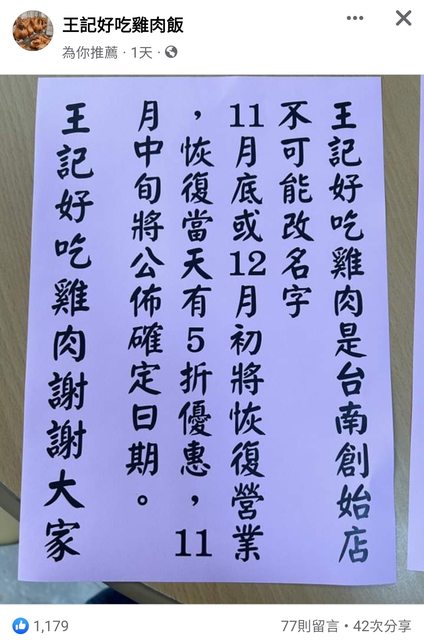 王記好吃雞肉飯
為你推薦·1天·
王記好吃雞肉是台南創始店
不可能改名字
11月底或12月初將恢復營業
，恢復當天有5折優惠，11
月中旬將公佈確定日期。
王記好吃雞肉謝謝大家
1,179
77則留言·42次分享